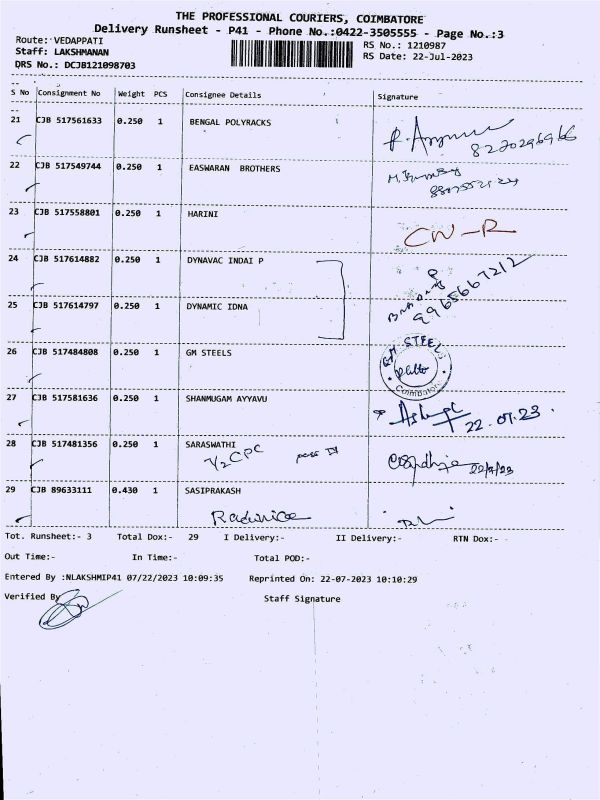 THE PROFESSIONAL COURIERS, COIMBATORE
Delivery Runsheet - P41 - Phone No.:0422-3505555 - Page No.:3
Route: VEDAPPATI
RS No.: 1210987
Staff: LAKSHMANAN
RS Date: 22-Jul-2023
DRS No.: DCJB121098703
S No Consignment No Weight PCS Consignee Details Signature
21 CJB 517561633 0.250 1 BENGAL POLYRACKS
22 CJB 517549744 0.250 1 EASWARAN BROTHERS
23 CJB 517558801 0.250 1 HARINI
CW-R
24 CJB 517614882 0.250 1 DYNAVAC INDAI P
9965667212
25 CJB 517614797 0.250 1 DYNAMIC IDNA
26 CJB 517484808 0.250 1 GM STEELS
GM STEELS
Coimbatore
27 CJB 517581636 0.250 1 SHANMUGAM AYYAVU
22.07.23
28 CJB 517481356 0.250 1 SARASWATHI
22/7/23
29 CJB 89633111 0.430 1 SASIPRAKASH
Tot. Runsheet:- 3 Total Dox:- 29 I Delivery:- II Delivery:- RTN Dox:-
Out Time:- In Time:- Total POD:-
Entered By :NLAKSHMIP41 07/22/2023 10:09:35 Reprinted On: 22-07-2023 10:10:29
Verified By Staff Signature